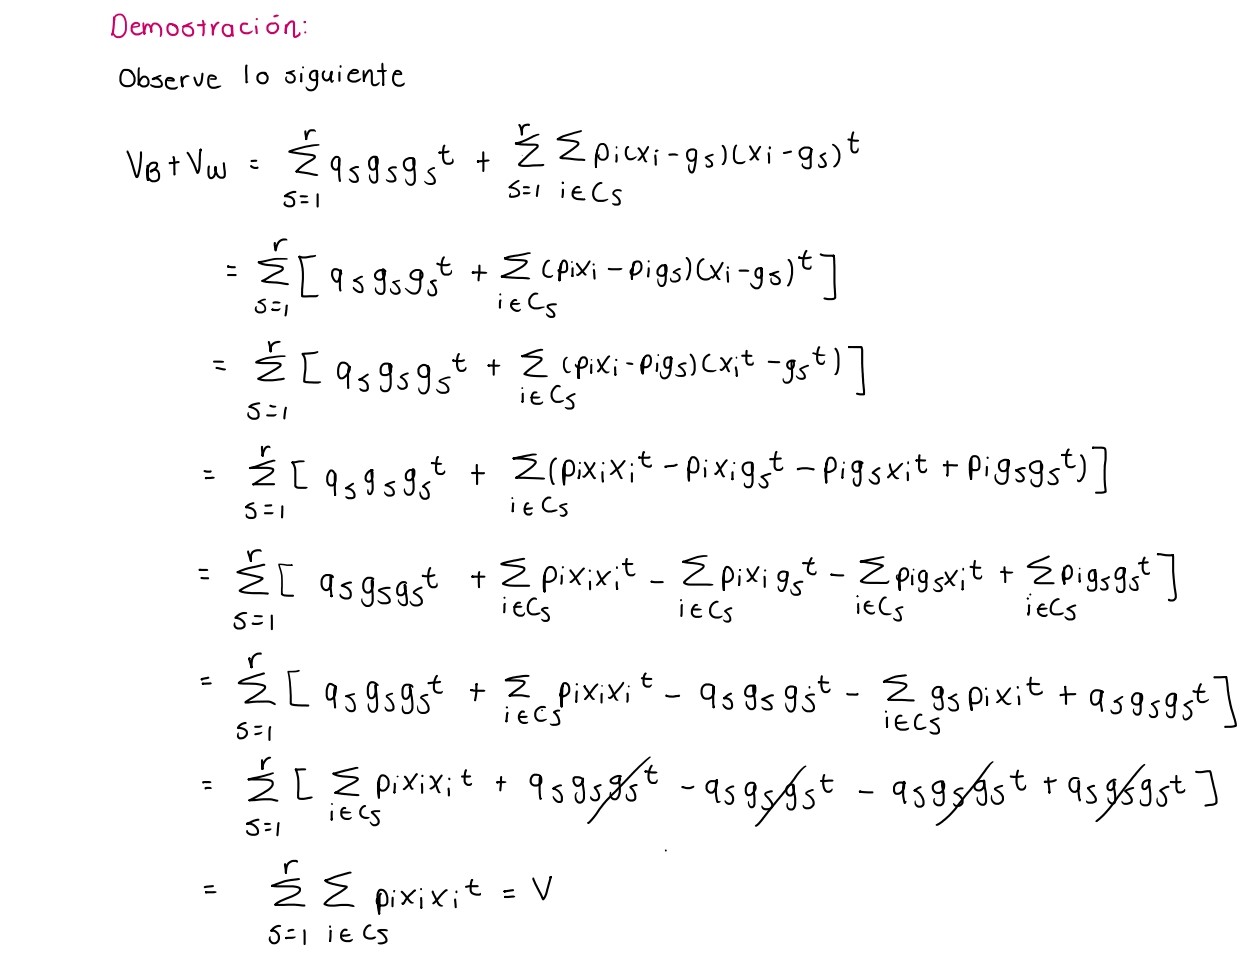 Demostración:
Observe lo siguiente
V_B + V_W = \sum_{s=1}^{r} q_s g_s g_s^t + \sum_{s=1}^{r} \sum_{i \in C_s} p_i (x_i - g_s)(x_i - g_s)^t
= \sum_{s=1}^{r} [ q_s g_s g_s^t + \sum_{i \in C_s} (p_i x_i - p_i g_s)(x_i - g_s)^t ]
= \sum_{s=1}^{r} [ q_s g_s g_s^t + \sum_{i \in C_s} (p_i x_i - p_i g_s)(x_i^t - g_s^t) ]
= \sum_{s=1}^{r} [ q_s g_s g_s^t + \sum_{i \in C_s} (p_i x_i x_i^t - p_i x_i g_s^t - p_i g_s x_i^t + p_i g_s g_s^t) ]
= \sum_{s=1}^{r} [ q_s g_s g_s^t + \sum_{i \in C_s} p_i x_i x_i^t - \sum_{i \in C_s} p_i x_i g_s^t - \sum_{i \in C_s} p_i g_s x_i^t + \sum_{i \in C_s} p_i g_s g_s^t ]
= \sum_{s=1}^{r} [ q_s g_s g_s^t + \sum_{i \in C_s} p_i x_i x_i^t - q_s g_s g_s^t - \sum_{i \in C_s} g_s p_i x_i^t + q_s g_s g_s^t ]
= \sum_{s=1}^{r} [ \sum_{i \in C_s} p_i x_i x_i^t + q_s g_s g_s^t - q_s g_s g_s^t - q_s g_s g_s^t + q_s g_s g_s^t ]
= \sum_{s=1}^{r} \sum_{i \in C_s} p_i x_i x_i^t = V